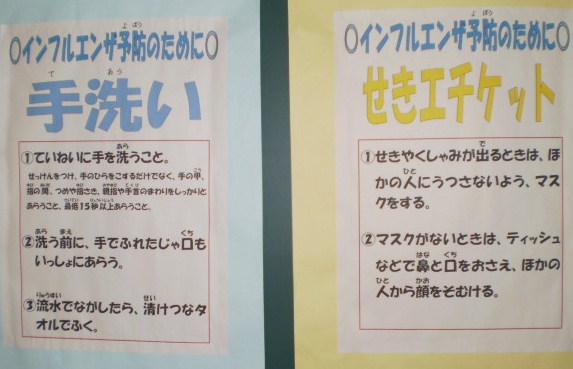 ○インフルエンザ予防のために○
手洗い
①ていねいに手を洗うこと。
せっけんをつけ、手のひらをこするだけでなく、手の甲、
指の間、つめや指さき、親指や手首のまわりをしっかりと
あらうこと、最低15秒以上あらうこと。
②洗う前に、手でふれたじゃ口も
いっしょにあらう。
③流水でながしたら、清けつなタ
オルでふく。
○インフルエンザ予防のために○
せきエチケット
①せきやくしゃみが出るときは、ほ
かの人にうつさないよう、マス
クをする。
②マスクがないときは、ティッシュ
などで鼻と口をおさえ、ほかの
人から顔をそむける。